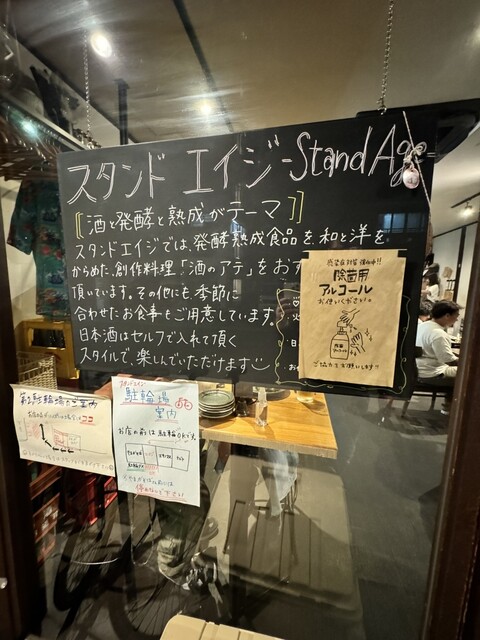 スタンド エイジ -Stand Age-
[[酒と発酵と熟成がテーマ]]
スタンドエイジでは、発酵熟成食品を、和と洋を
からめた、創作料理「酒のアテ」をおす
頂いています。その他にも、季節に
合わせたお食事もご用意しています。
日本酒はセルフで入れて頂く
スタイルで、楽しんでいただけます
除菌用
アルコール
お使いください
ご協力お願いします!!
第2駐輪場のご案内
ココ
駐輪場
案内
お店の前は駐輪OK!